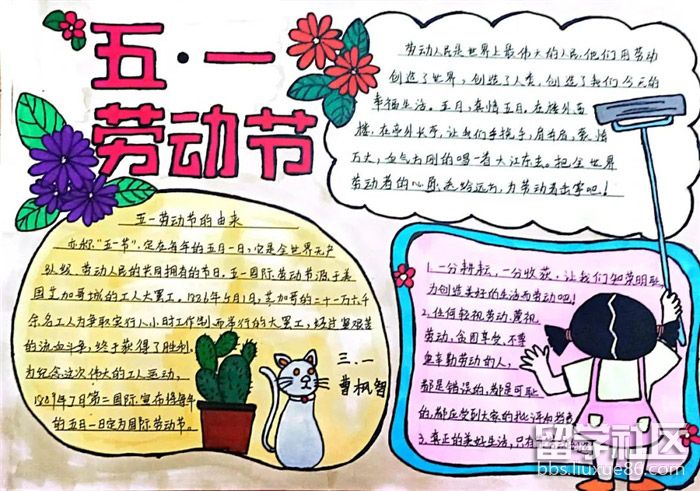 五·一
劳动节
劳动人民是世界上最伟大的人民,他们用劳动
创造了世界,创造了人类,创造了我们今天的
幸福生活。五月,真情五月。在楼外西
楼,在亭外长亭,让我们手挽手,肩并肩,豪情
万丈,血气方刚的唱一首大江东去。把全世界
劳动者的心愿,送给远方,为劳动者击掌吧!
五一劳动节的由来
亦称"五一节",定在每年的五月一日,它是全世界无产
队级、劳动人民的共同拥有的节日。五一国际劳动节源于美
国芝加哥城的工人大罢工。1886年5月1日,芝加哥的二十一万六千
余名工人为争取实行八小时工作制而举行的大罢工,经过艰苦
的流血斗争,终于获得了胜利。
为纪念这次伟大的工人运动,
1889年7月第二国际宣布将每年
的五月一日定为国际劳动节。
三.一
曹枫智
1.一分耕耘,一分收获,让我们知荣明耻
为创造美好的生活而劳动吧!
2.任何轻视劳动、蔑视
劳动,贪图享受、不尊
重辛勤劳动的人,
都是错误的,都是可耻
的,都应受到大家的批评和
3.真正的美好生活,只有
留学社区
bbs.liuxue86.com